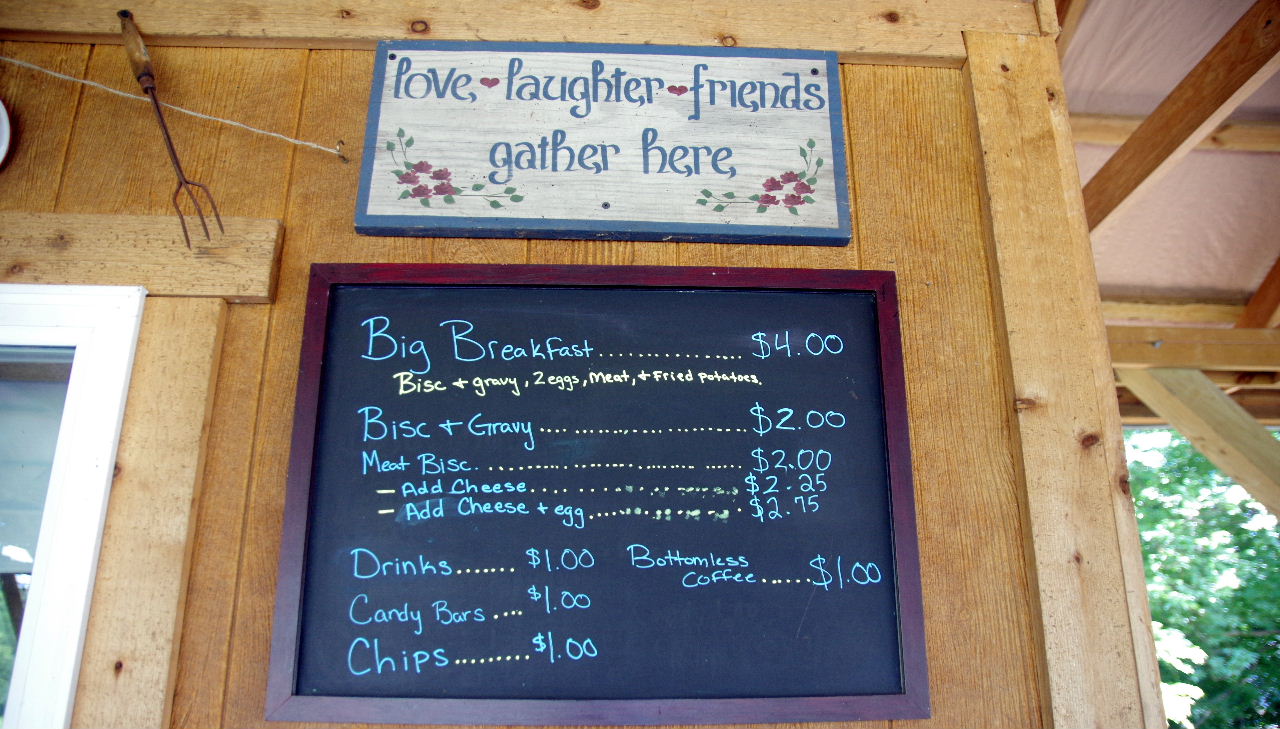 love laughter friends
gather here
Big Breakfast ................ $4.00
Bisc + gravy, 2 eggs, Meat, + Fried potatoes.
Bisc + Gravy .................... $2.00
Meat Bisc. .......................... $2.00
- Add Cheese ...................... $2.25
- Add Cheese + egg ................ $2.75
Drinks ....... $1.00
Bottomless
Coffee ...... $1.00
Candy Bars .... $1.00
Chips ......... $1.00